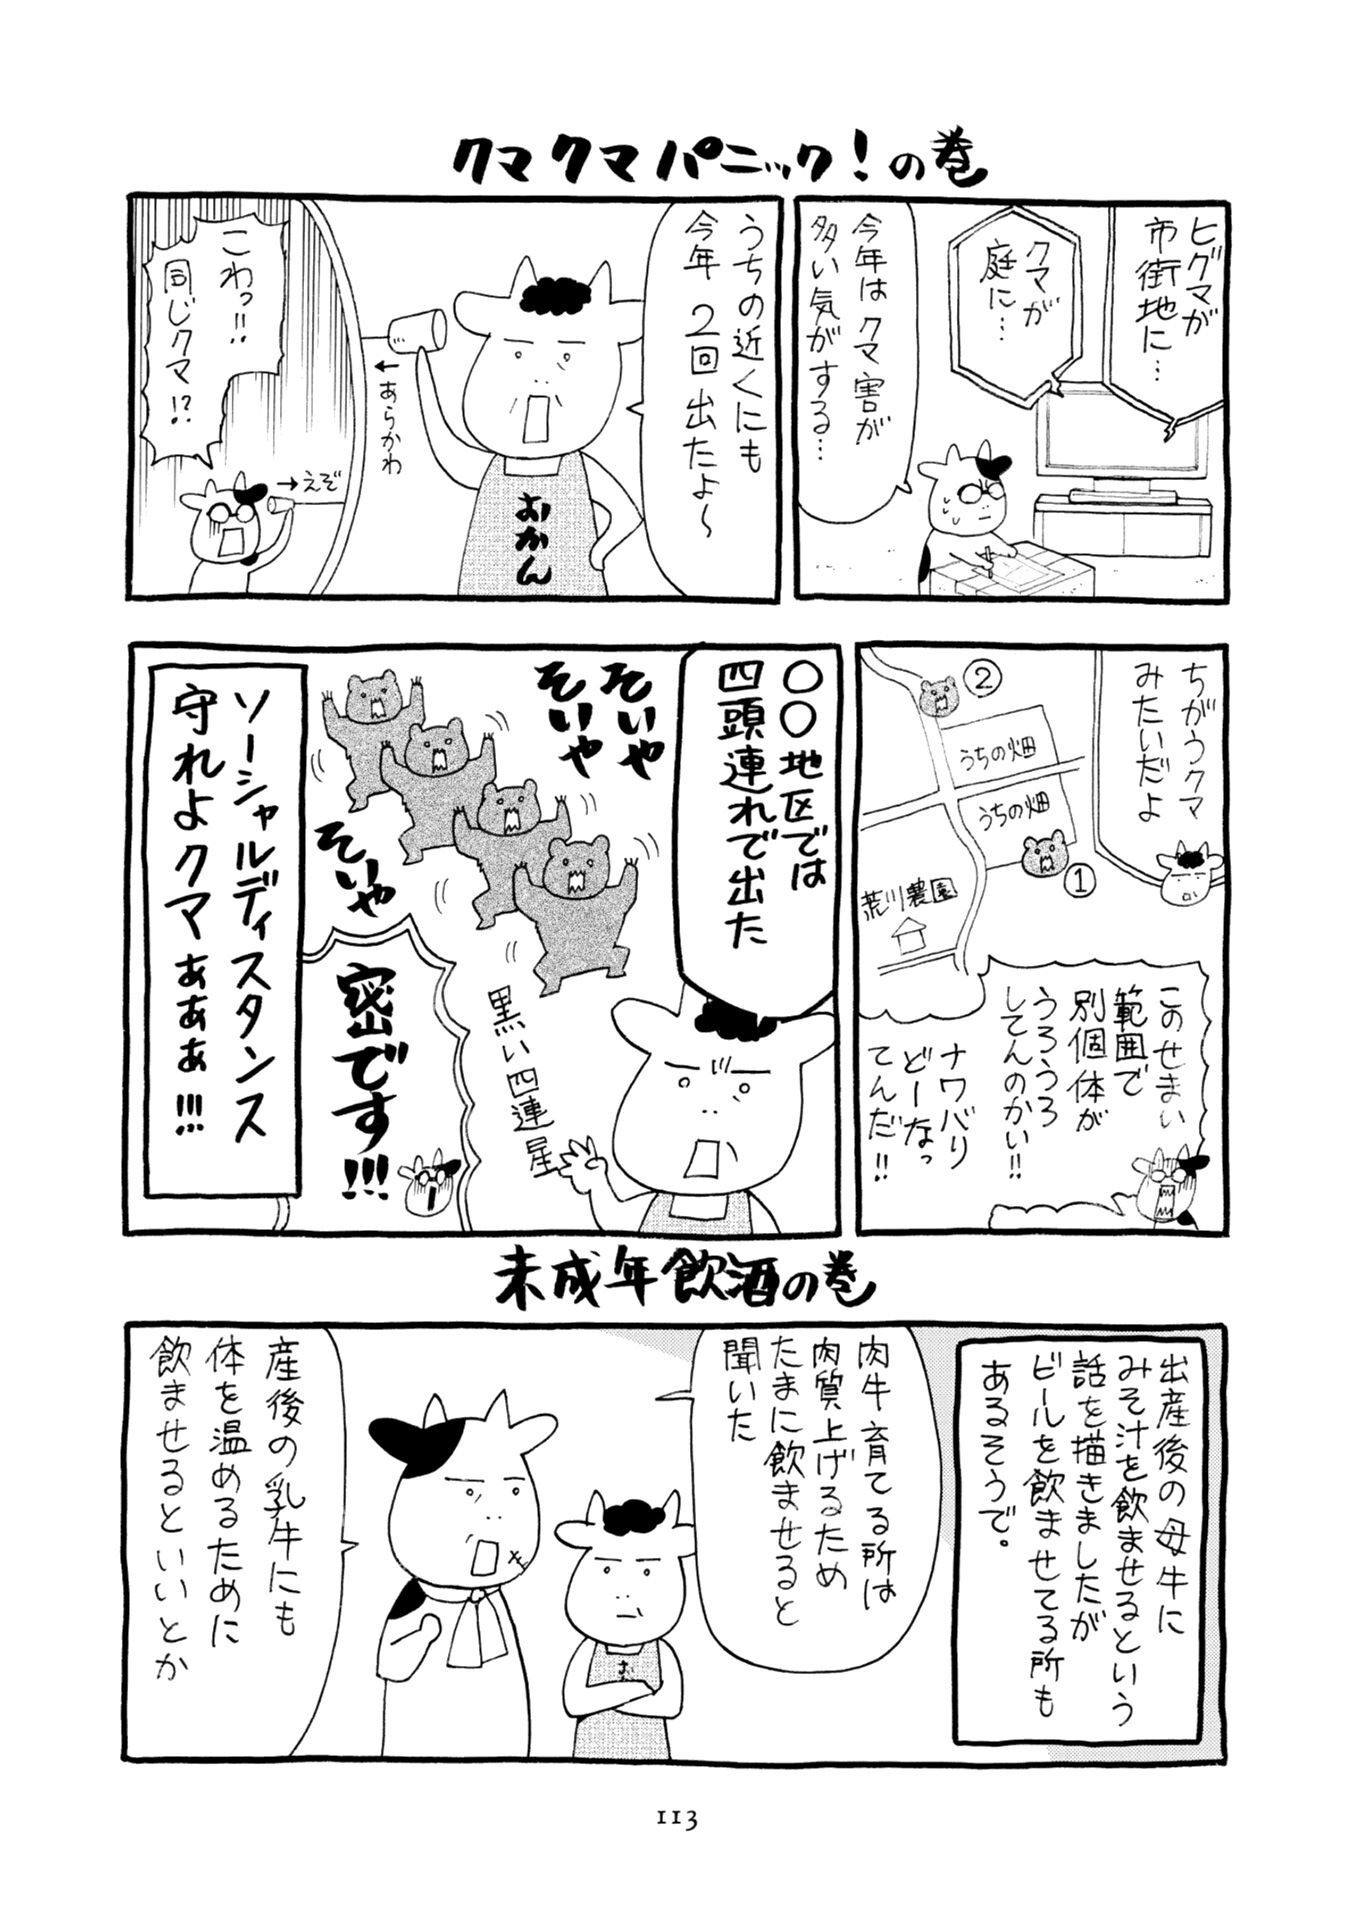 クマクマパニック!の巻
ヒグマが
市街地に…
クマが
庭に…
今年はクマ害が
多い気がする…
うちの近くにも
今年2回出たよ〜
おかん
←あらかわ
→えぞ
こわっ!!
同じクマ!?
ちがうクマ
みたいだよ
②
うちの畑
うちの畑
①
荒川農園
このせまい
範囲で
別個体が
うろうろ
してんのかい!!
ナワバリ
どーなっ
てんだ!!
〇〇地区では
四頭連れで出た
そいや
そいや
そいや
黒い四連星
密です!!!
ソーシャルディスタンス
守れよクマぁぁぁ!!!
未成年飲酒の巻
出産後の母牛に
みそ汁を飲ませるという
話を描きましたが
ビールを飲ませてる所も
あるそうで。
肉牛育てる所は
肉質上げるため
たまに飲ませると
聞いた
お
産後の乳牛にも
体を温めるために
飲ませるといいとか
113